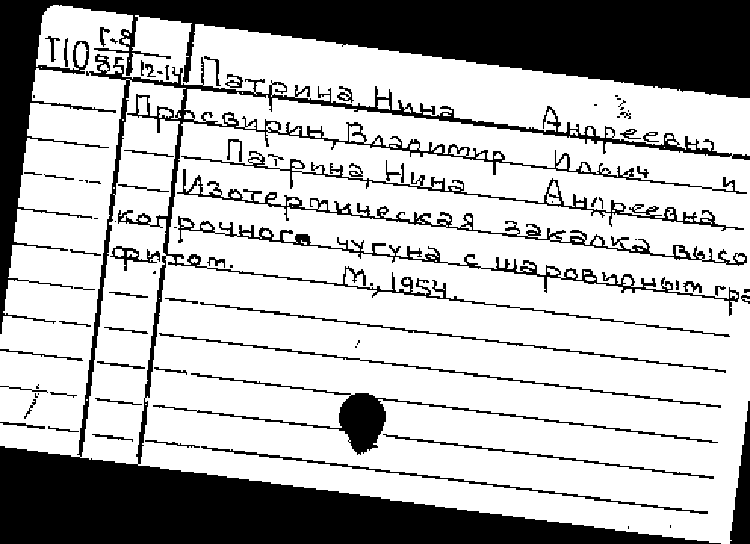 Т10 Г-8
85 12-14 Патрина, Нина Андреевна
Просвирин, Владимир Ильич и
Патрина, Нина Андреевна,
Изотермическая закалка высо
копрочного чугуна с шаровидным гра
фитом. М., 1954.